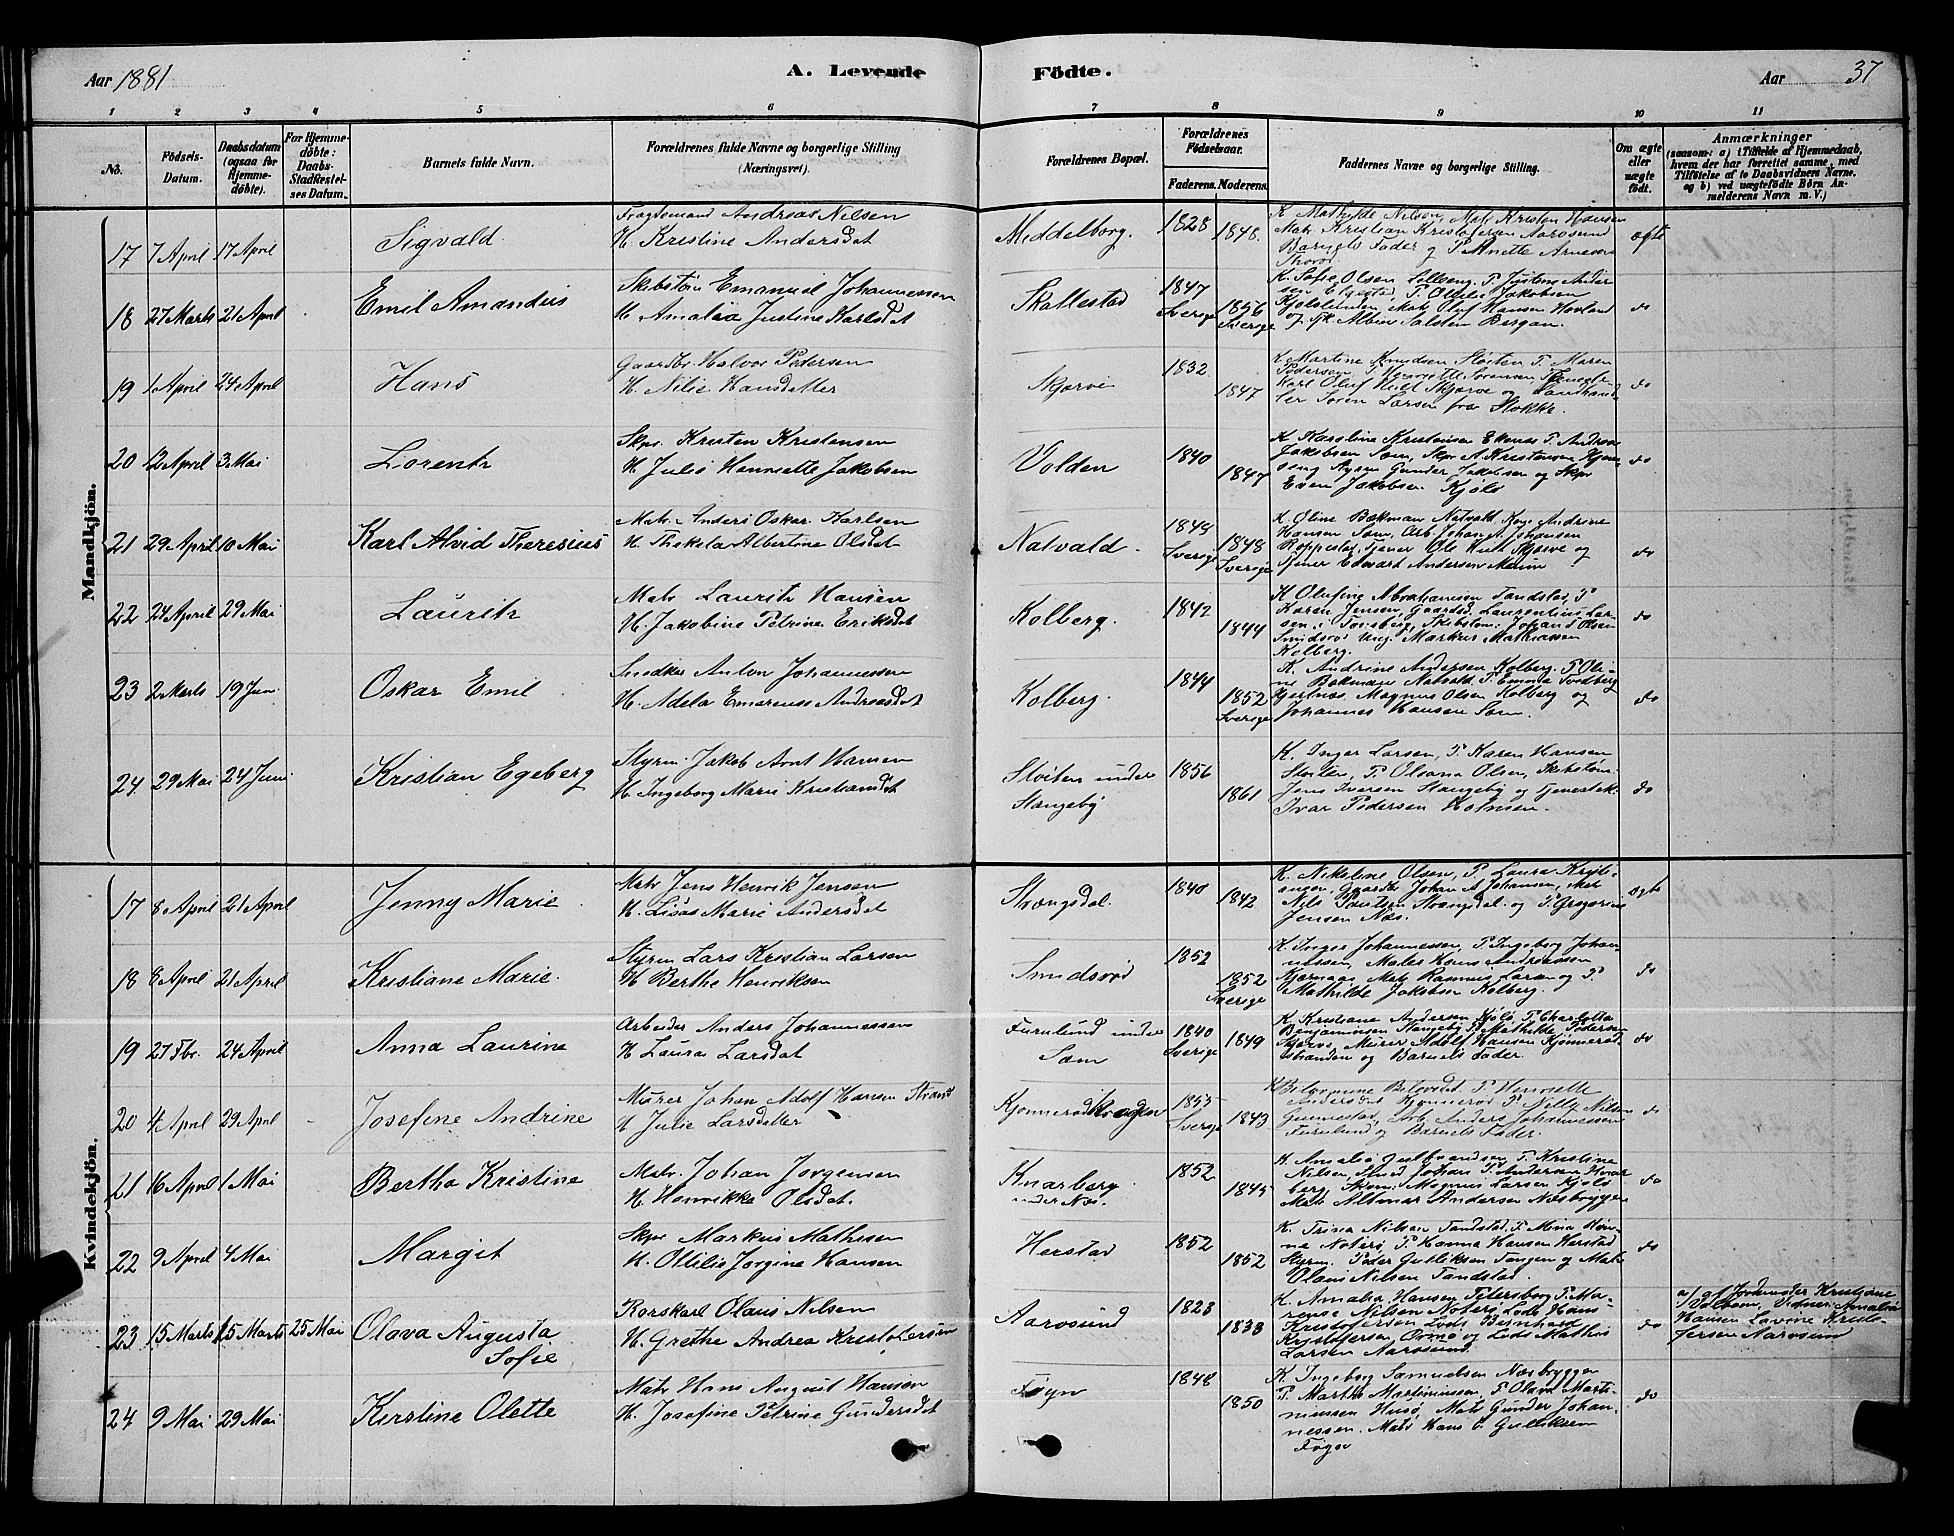 Aar 1881
A. Levende
Födte.
Aar 37
1 2 3 4 5 6 7 8 9 10 11
No.
Födsels-Datum.
Daabsdatum (ogsaa for Hjemme-döbte).
For Hjemme-döbte: Daabs-Stadfæstel-ses Datum.
Barnets fulde Navn.
Forældrenes fulde Navne og borgerlige Stilling (Næringsvei).
Forældrenes Bopæl.
Forældrenes Födselsaar.
Faderens. Moderens.
Faddernes Navne og borgerlige Stilling.
Om ægte eller uægte födt.
Anmærkninger
(saasom: a) i Tilfælde af Hjemmedaab, hvem der har forrettet samme, med Tilföielse af to Daabsvidners Navne, og b) ved uægtefödte Börn An-melderens Navn m. V.)
Mandkjön.
17 7 April 17 April Sigvald
Fragtemand Andreas Nilsen
H. Kristine Andersdat
Middelborg. 1828 1848.
K. Mathilde Nilsen, Mat. Kristen Hansen
Matr. Kristian Kristofersen Aarosund
Barnets Fader og P. Anette
ægte
18 27 Marts 21 April Emil Amandus
Skibstöm Emanuel Johannessen
H. Amalia Justine Karlsdat
Skallestad 1847 Sverige 1856 Sverige
K. Sofie Olsen P. Justine Ander-
sen P. Otilie Jakobsen
Matr Oluf Hansen Hovland
og Albin Salsten Bergan.
do
19 1 April 24 April Hans
Gaardbr Halvor Pedersen
H. Nilie Hansdatter
Skjerve 1832 1847
K. Martine Knudsen Stoiten P. Maren
Pedersen, P. Henriette Sorensen,
Karl Oluf Skjerve og Landhand-
ler Soren Larsen fra Stokke.
do
20 12 April 3 Mai Lorentz
Skpr. Kristen Kristensen
H. Julie Henriette Jakobsen
Volden 1840 1847
K. Karoline Kristensen Ekenes P. Andrea
Jakobsen Sem, Skpr A. Kristensen
Gunder Jakobsen og Skpr
Even Jakobsen Kjöle
do
21 29 April 10 Mai Karl Alvid Theresius
Matr. Anders Oskar Karlsen
H. Thekela Albertine Olsdat
Natvald. 1849 Sverige 1848 Sverige
K. Oline Bækman Natvald, Andrine
Hansen Sem, Arb Johans. Johansen
Roppestad, Tjener Ole Skjerve og
Tjener Edvart Andersen
do
22 24 April 29 Mai Lauritz
Matr Lauritz Hansen
H. Jakobine Petrine Eriksdat
Kolberg. 1842 1844
K. Olufine Abrahamsen Tandstad, P.
Karen Jensen, Gaardbd. Laurentius Lar-
sen i Tonsberg, Skibstom. Johan S Olsen
Smidsrod Ung. Markus Mathiassen
Kolberg.
do
23 2 Marts 19 Juni Oskar Emil
Snedker Anton Johannessen
H. Adela Emerense Andreasdat
Kolberg. 1844 1852 Sverige
K. Andrine Andersen Kolberg. P. Oli-
ne Bækman Natvald. P. Emma
Magnus Olsen Kolberg og
Johannes Hansen Sem.
do
24 29 Mai 24 Juni Kristian Egeberg
Styrm. Jakob Arnt Hansen
H. Ingeborg Marie Kristiansdat
Stoiten under Stangeby 1856 1861
K. Inger Larsen, P. Karen Hansen
Stoiten, P. Olsana Olsen, Skibstom.
Jens Iversen Stangeby og
Ivar Pedersen Holmen.
do
Kvindekjön.
17 8 April 21 April Jenny Marie
Matr Jens Henrik Jensen
H. Lisas Marie Andersdat
Strengsdal. 1840 1842
K. Nikoline Olsen, P. Laura
Gaardbr Johan A Johansen, Matr
Nils Strengsdal. og P. Gregorine
Jensen Næs.
ægte
18 8 April 21 April Kristiane Marie.
Styrm Lars Kristian Larsen
H Berthe Henriksen
Smidsrod 1852 1852 Sverige
K. Inger Johannessen, P. Ingeborg Johan-
nessen, Maler Hans Andreassen
Kjernaas, Matr Larsen og P.
Mathilde Jakobsen Kolberg.
do
19 27 Fbr. 24 April Anna Laurine
Arbeider Anders Johannessen
H Laura Larsdat
Furulund under Sem 1840 Sverige 1849
K. Kristiane Andersen Kjole P. Charlotta
Benjaminsen Stangeby P. Mathilde Pedersen
Skjerve, Murer Adolf Hansen Kjonnerod-
stranden og Barnets Fader.
do
20 4 April 29 April Josefine Andrine
Murer Johan Adolf Hansen Strand
H Julie Larsdatter
Kjonnerod Kragen 1853 Sverige 1843
K P. Henriette
Andersdat Kjonnerod P. Nelly Nilsen
Gunnestad, Arb. Anders Johannessen
Furulund og Barnets Fader.
do
21 16 April 1 Mai Bertha Kristine
Matr. Johan Jorgensen
H. Henrikke Olsdat.
Knarberg under Næs. 1852 1845
K. Amalia P. Kristine
Nilsen, Johan P. Andersen Knar-
berg, Magnus Larsen Kjole
Matr Altmar Andersen Næsbryggen
do
22 9 April 4 Mai Margit
Skpr Markus Mathisen
H. Ottilie Jorgine Hansen
Herstad 1852 1852
K. Trina Nilsen Tandstad. P. Mina
Notero, P. Hanna Hansen Herstad
Styrm. Peder Gulliksen Tangen og Matr
Olavi Nilsen Tandstad.
do
23 15 Marts 15 Marts 25 Mai Olava Augusta Sofie
Rorskarl Olaus Nilsen
H. Grethe Andrea Kristofersen
Aarosund 1823 1838
K. Amalia Hansen Petersborg P. Ma-
rense Nilsen Notero, Lods Hans
Kristofersen Lods Bernhard
Kristofersen, Ormo og Lods Mathis
Larsen Aarosund.
do
a) af Jordemoder Kristjane
Amalia
Hansen Lavine Kristo-
fersen Aarosund
24 9 Mai 29 Mai Kerstine Olette
Matr Hans August Hansen
H. Josefine Petrine Gundersdat
Foyn 1848 1850
K. Ingeborg Samuelsen Næsbryggen
P. Marthe Martiniussen, P. Olava Marti-
niussen Husö, Matr Gunder Johan-
nessen. Matr Hans C Gulliksen
Foyn
do